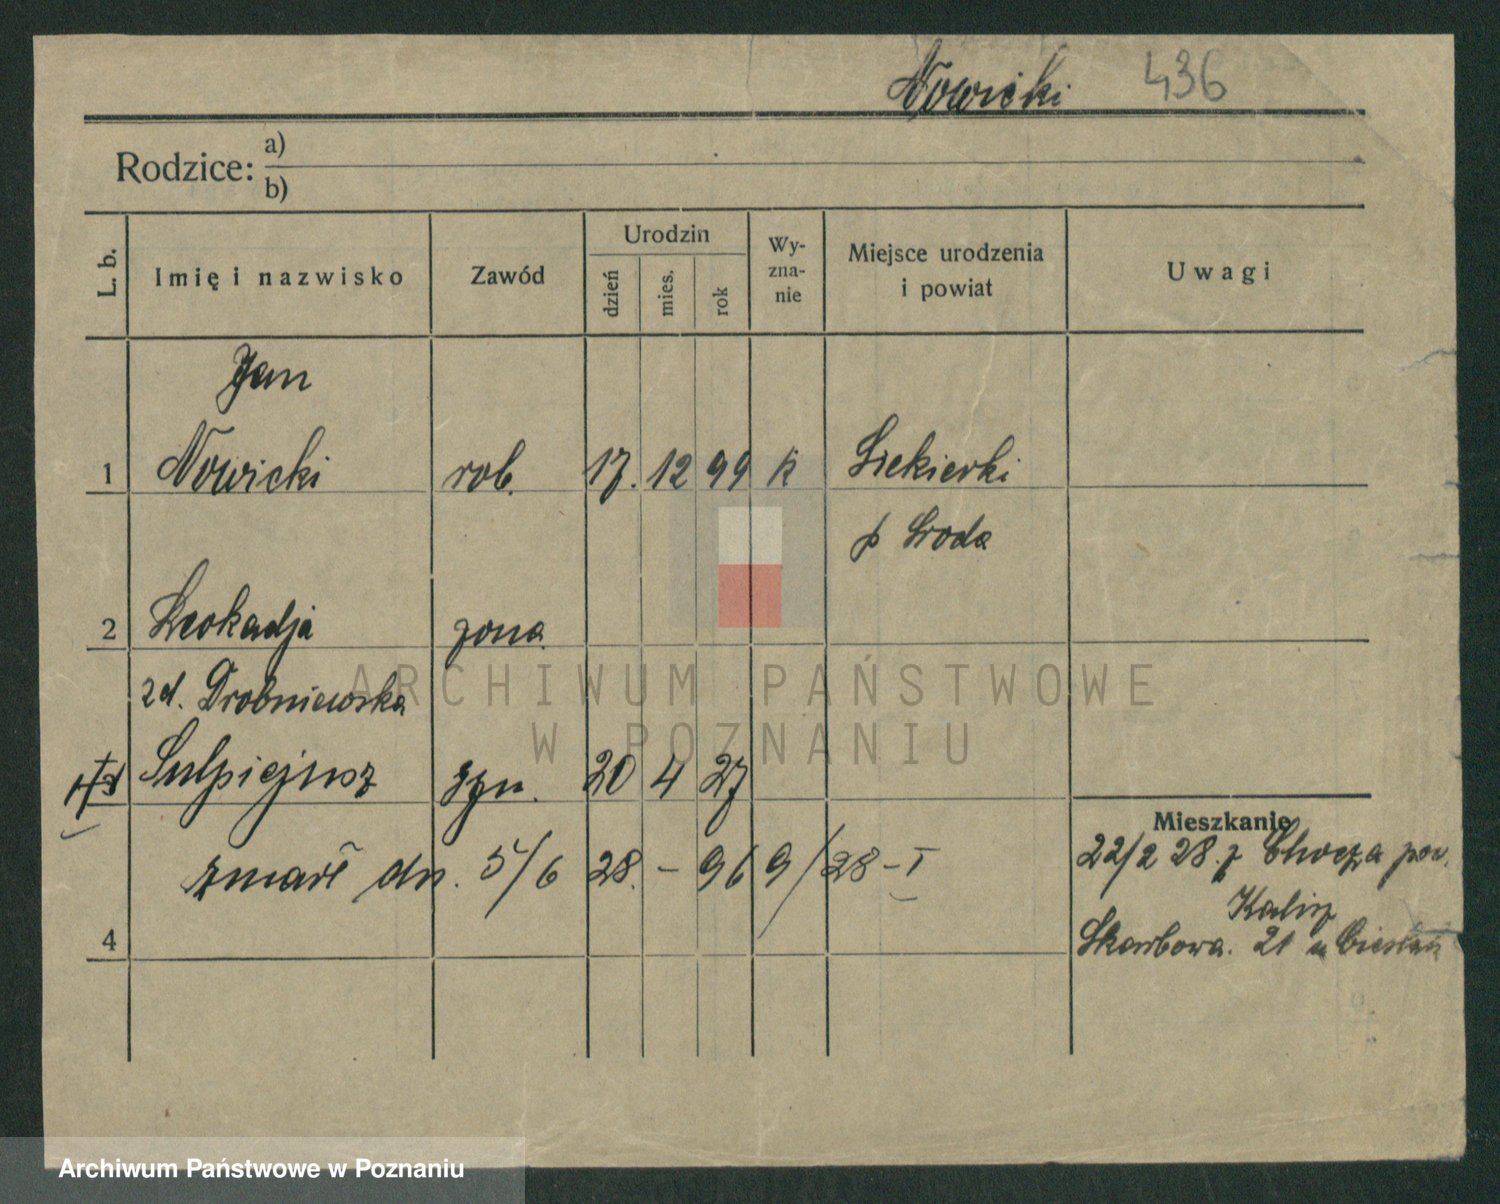 Nowicki 436
Rodzice: a)
b)
L. b. Imię i nazwisko Zawód Urodzin dzień mies. rok Wy-zna-nie Miejsce urodzenia i powiat Uwagi
Jan
1 Nowicki rob. 17. 12 99 k Siekierki
p Sroda
2 Leokadja żona
zd. Drobniewska
Sulpicjusz syn. 20 4 27
Mieszkanie
zmarł dn. 5/6 28. – 969/28 – I
22/2 28. z Chocza pow.
Kalisz
4 Skarbowa. 21 u Cieślak
ARCHIWUM PAŃSTWOWE
W POZNANIU
Archiwum Państwowe w Poznaniu